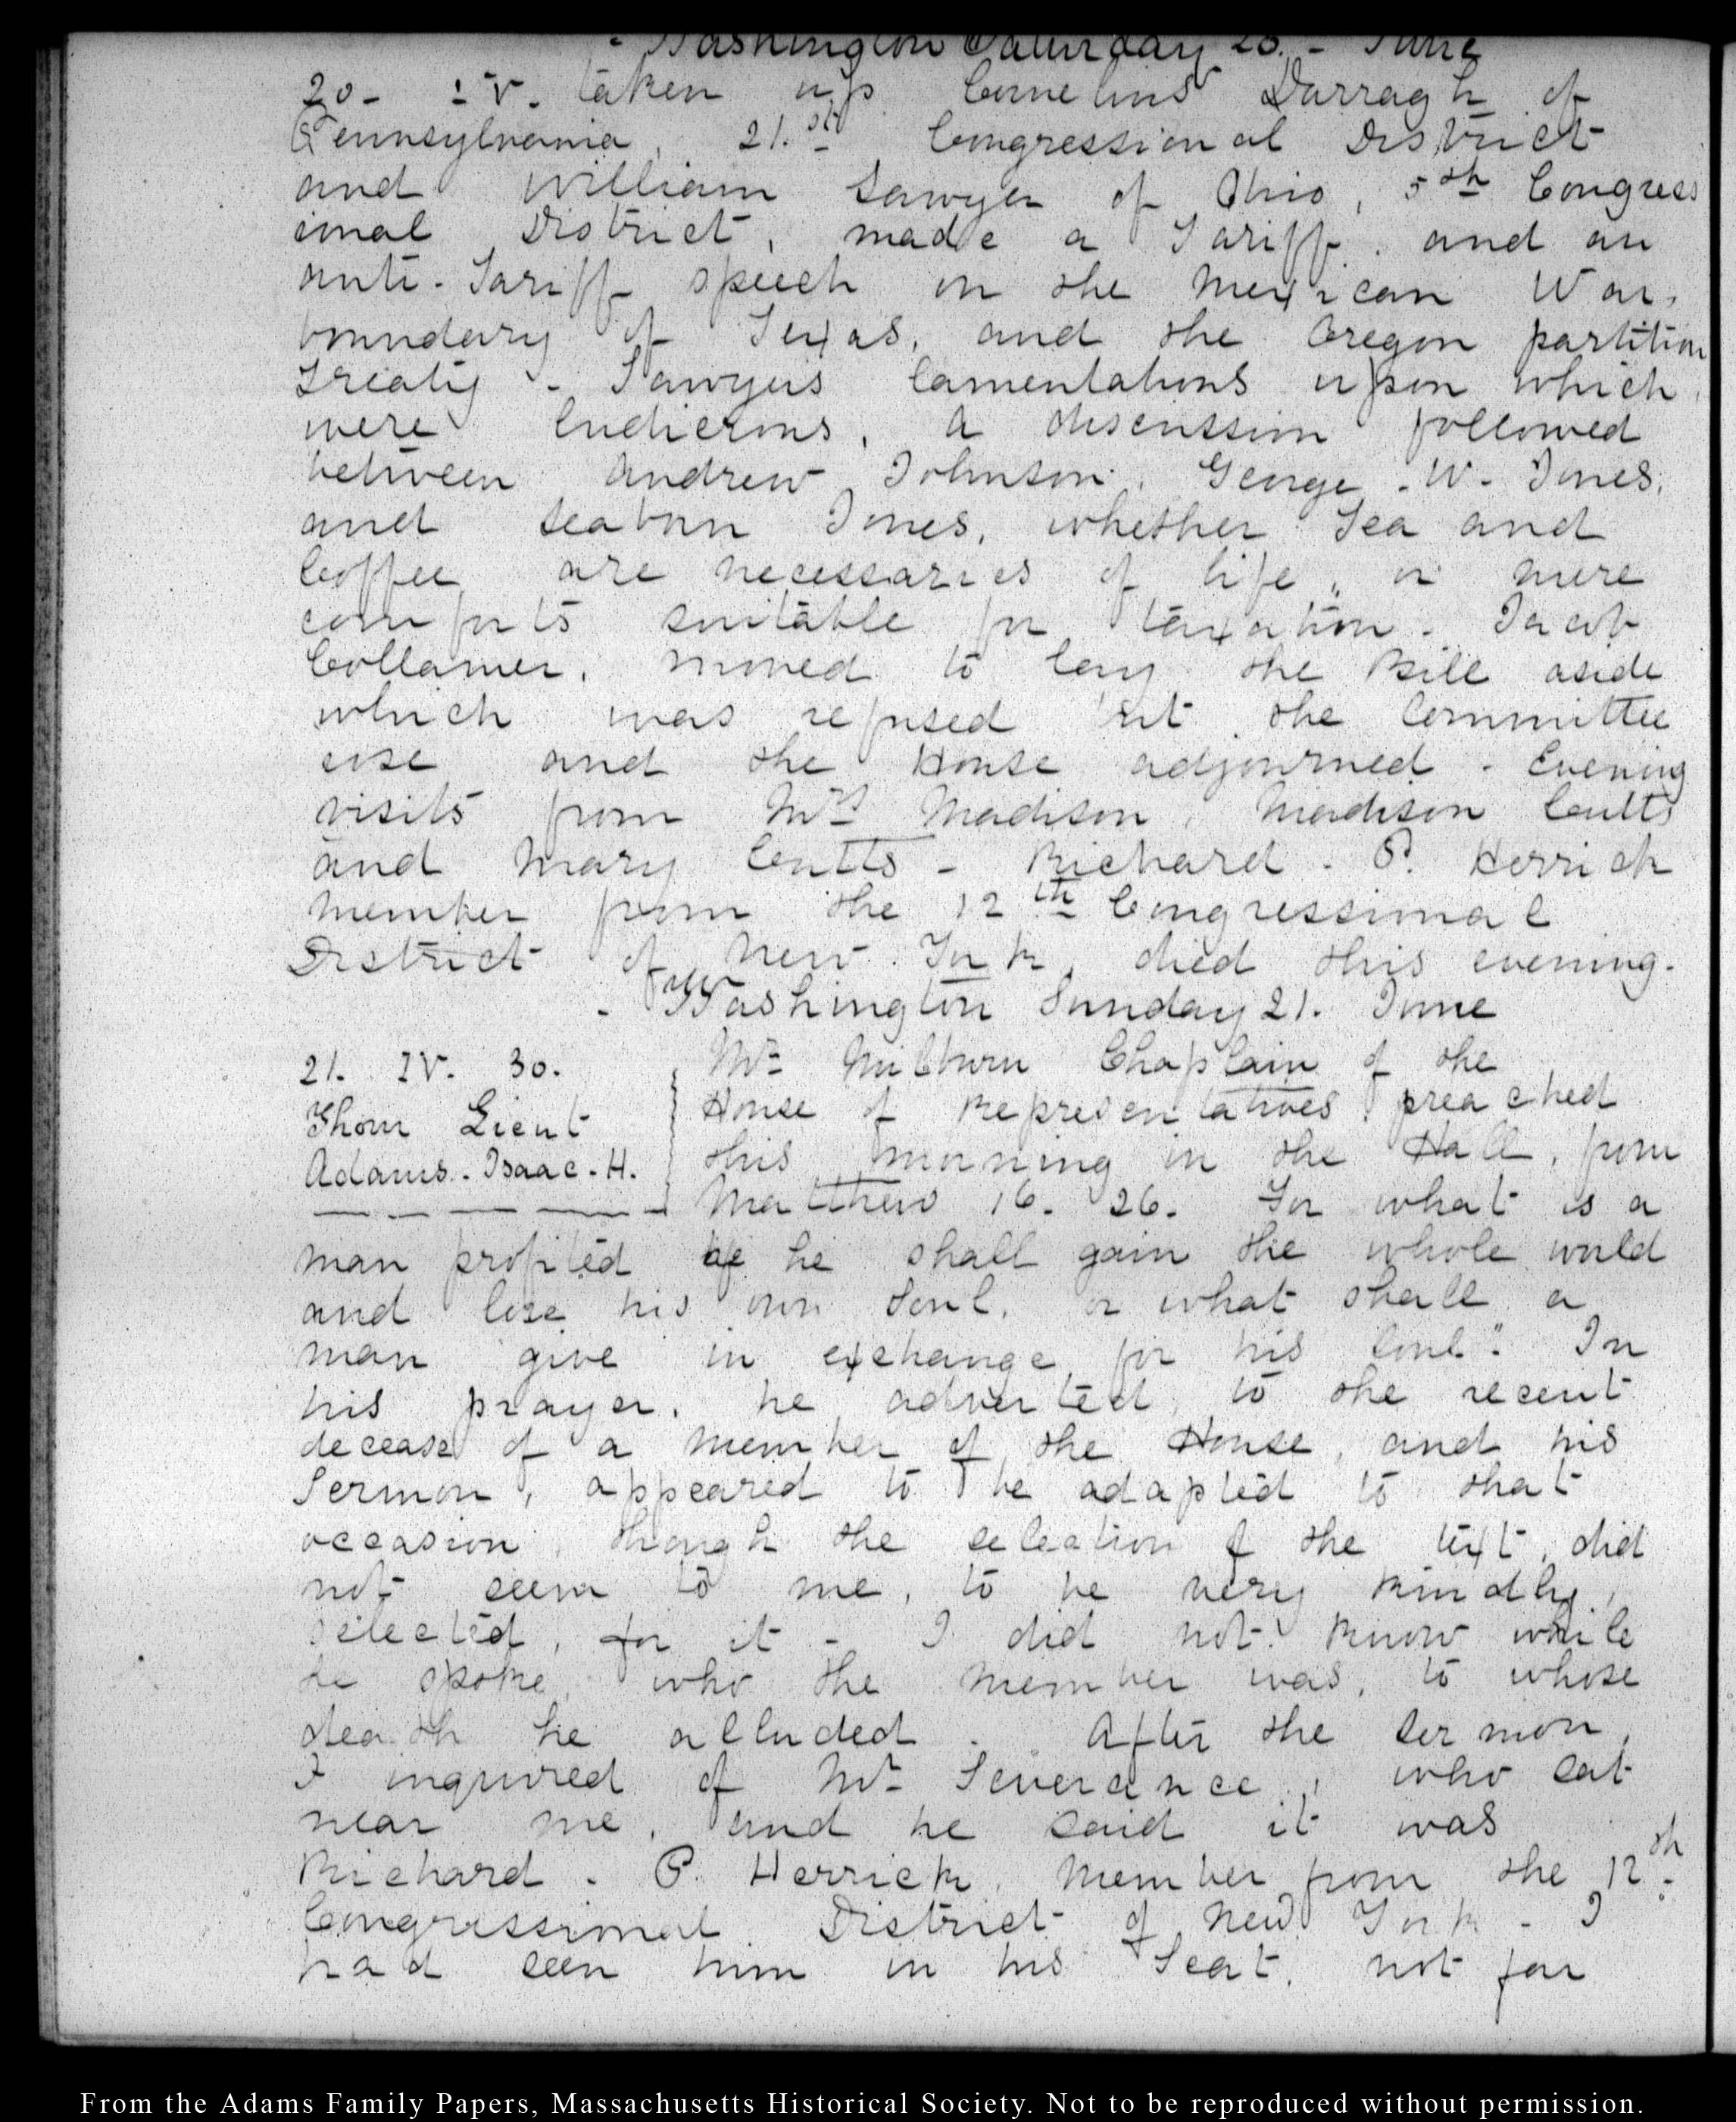 - Washington Saturday 20. - June
20 - IV. taken up Cornelius Darragh of
Pennsylvania, 21.st Congressional District
and William Sawyer of Ohio, 5th Congress
ional District, made a Tariff. and an
anti-Tariff speech on the Mexican War,
boundary of Texas, and the Oregon partition
Treaty - Sawyers lamentations upon which,
were ludicrous, A discussion followed
between Andrew Johnson, George - W - Jones,
and Seaborn Jones, whether Tea and
Coffee are necessaries of life, or mere
comforts suitable for taxation - Jacob
Collamer, moved to lay the Bill aside
which was refused but the Committee
rose and the House adjourned - Evening
visits from Mrs Madison, Madison Cutts
and Mary Cutts - Richard - P. Herrick
member from the 12th Congressional
District of New York, died this evening.
- Washington Sunday 21. June
21. IV. 30.
Thom Lieut
Adams - Isaac - H.
Mr Milburn Chaplain of the
House of Representatives preached
this morning in the Hall, from
Matthew 16. 26. For what is a
man profited if he shall gain the whole world
and lose his own Soul, or what shall a
man give in exchange for his soul". In
his prayer, he adverted to the recent
decease of a member of the House, and his
Sermon, appeared to be adapted to that
occasion, though the selection of the text, did
not seem to me, to be very kindly,
selected, for it - I did not know while
he spoke, who the member was, to whose
death he alluded. After the sermon,
I inquired of Mr Severance, who sat
near me, and he said it was
Richard - P. Herrick, member from the 12th
Congressional District of New York - I
had seen him in his Seat, not far
From the Adams Family Papers, Massachusetts Historical Society. Not to be reproduced without permission.